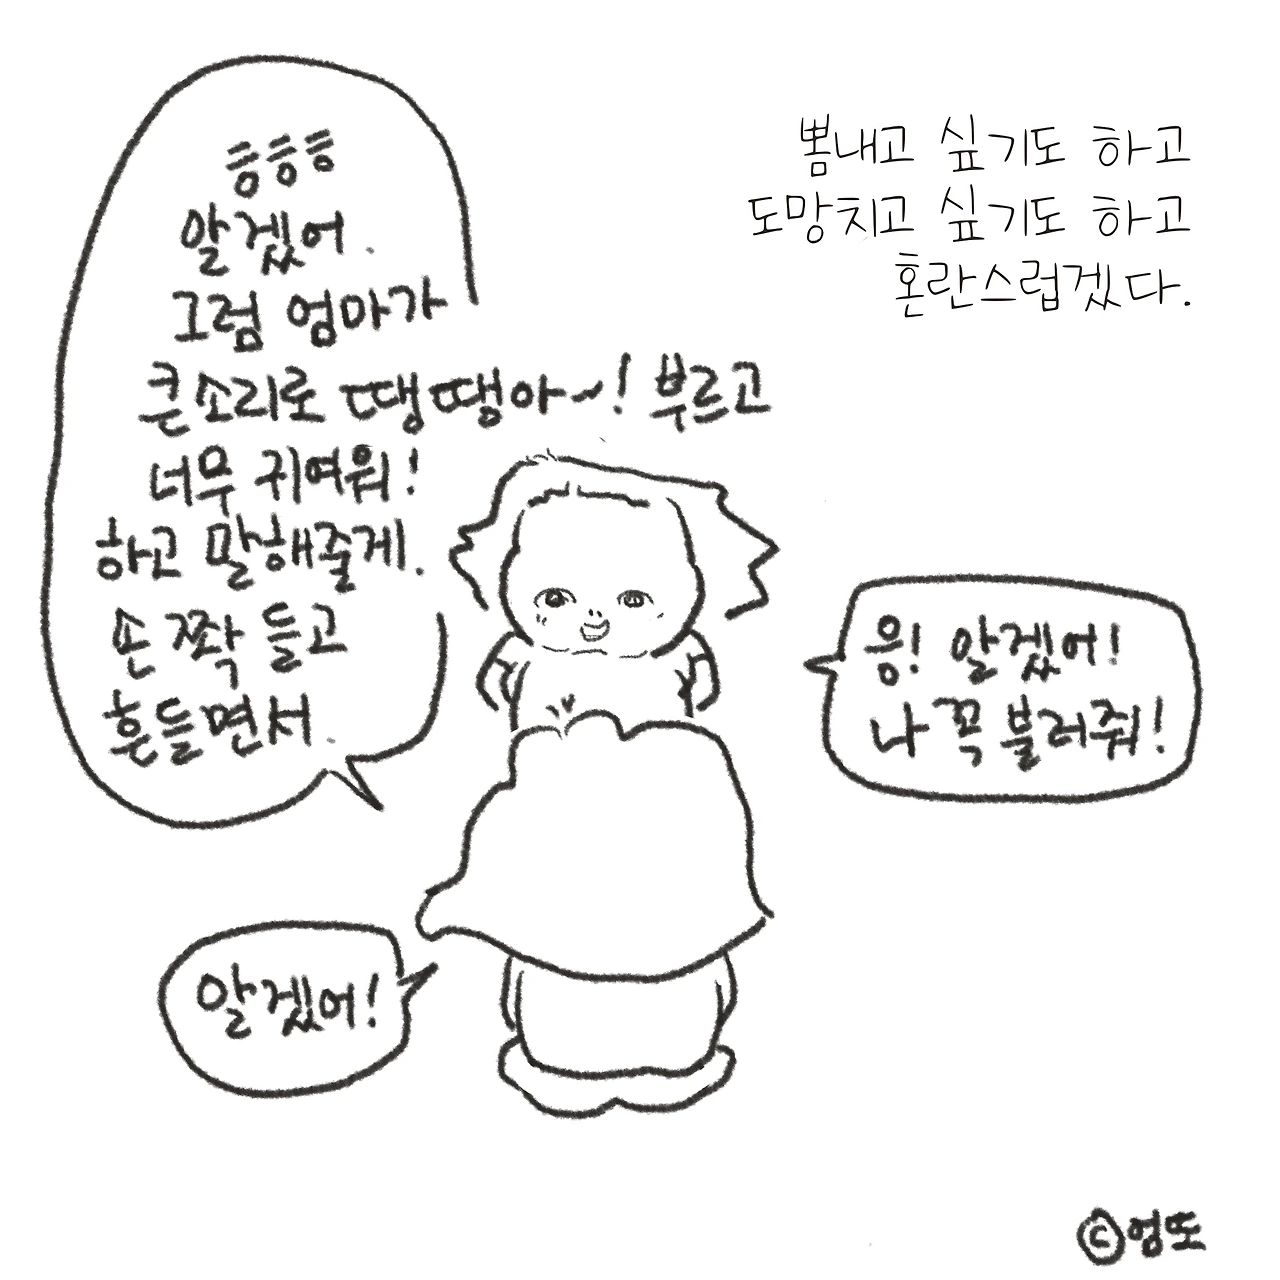 흥흥흥
알겠어.
그럼 엄마가
큰소리로 땡땡아~! 부르고
너무 귀여워!
하고 말해줄게.
손 짝 들고
흔들면서.
뽐내고 싶기도 하고
도망치고 싶기도 하고
혼란스럽겠다.
응! 알겠어!
나 꼭 불러줘!
알겠어!
©엄또